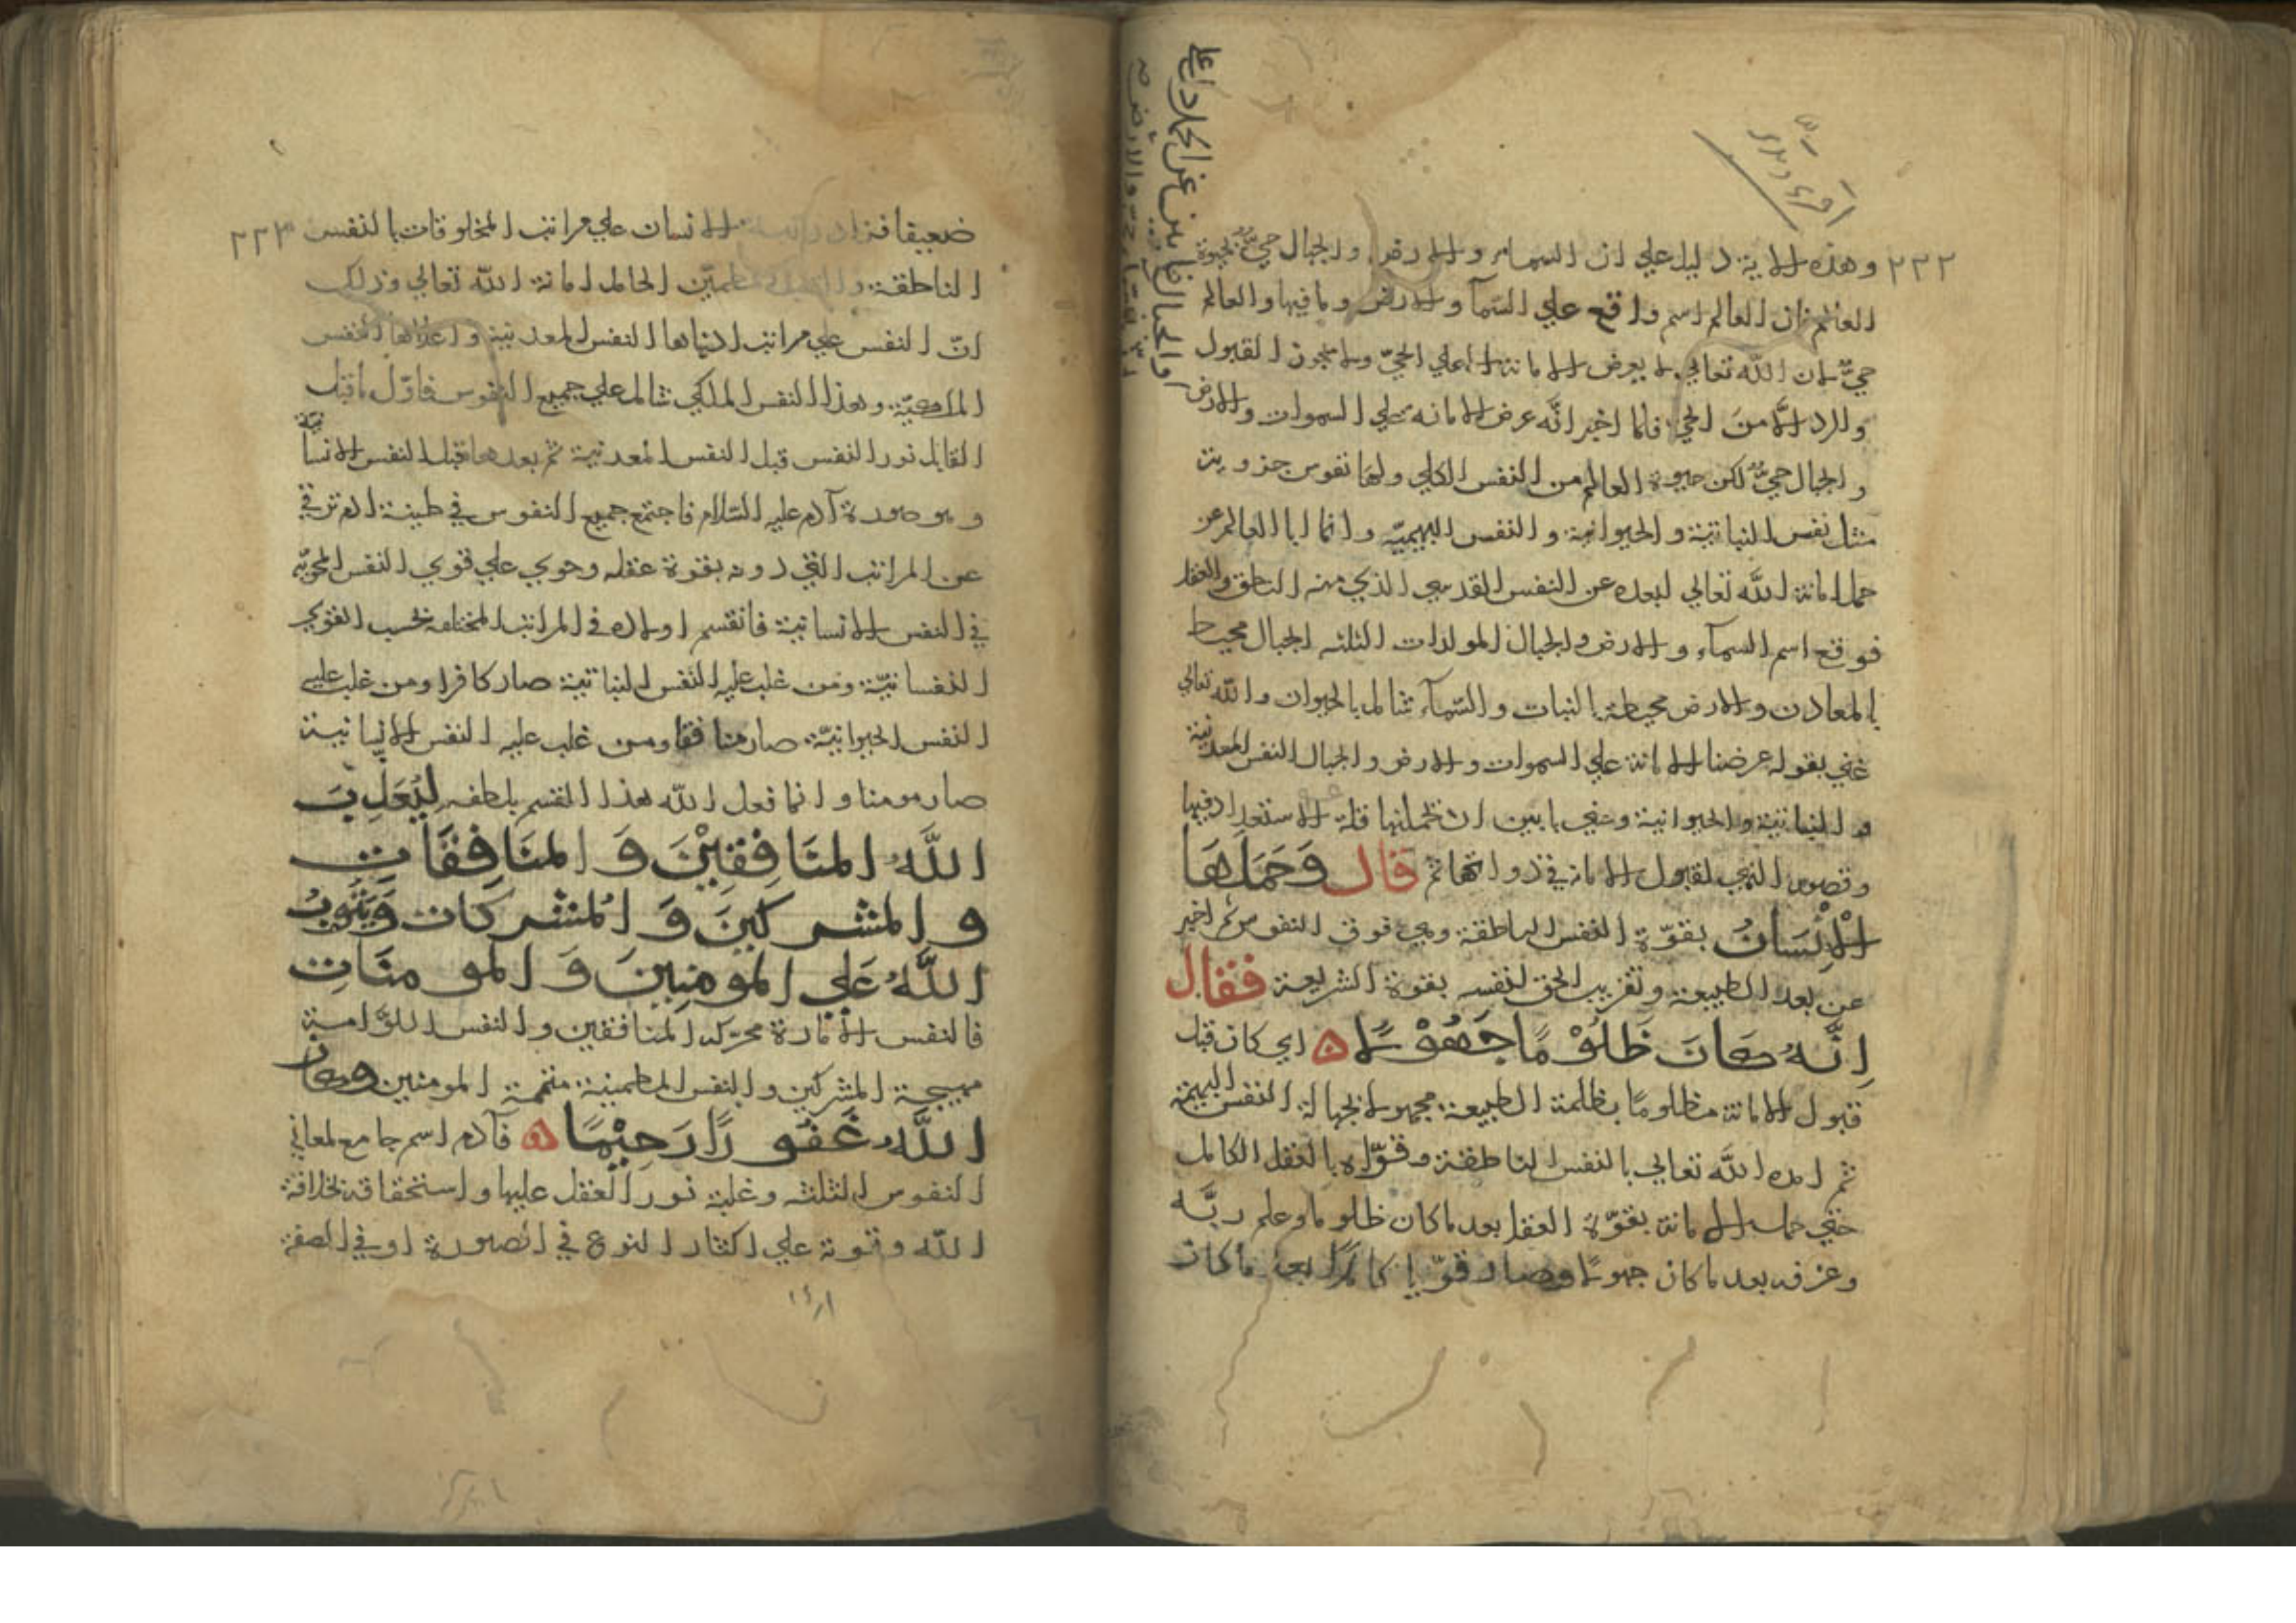 ٢٢٢
وهذه الاية دليل علي ان السماء والارض والجبال حيّ بحيوة
العالم فان العالم اسم واقع علي السمآ والارض وما فيها والعالم
حيّ لان الله تعالي لا يعرض الامانة الا علي الحيّ ولا يكون القبول
والرد الّا من الحي فلما اخبر انّه عرض الامانه علي السموات والارض
والجبال حيّ لكن حيوة العالم من النفس الكلي ولها نفوس جزوية
مثل نفس النباتية والحيوانية والنفس البهيميّة وانما ابا العالم عن
حمل امانة الله تعالي لبعده عن النفس القدسي الذي منه النطق والعقل
فوقع اسم السمآء والارض والجبال المولدات الثلثه الجبال محيط
بالمعادن والارض محيطة بالنبات والسّمآء شامل بالحيوان والله تعالي
عني بقوله عرضنا الامانة علي السموات والارض والجبال النفس المعدنية
والنباتية والحيوانية وعني بابين ان يحملنها قلة الاستعداد فيها
وقصور التهي لقبول الامانة في ذواتها ثم قال وَحَمَلَهَا
الْاِنْسَانُ بقوّة النفس الناطقة وهي فوق النفوس ثم اخبر
عن بعد الطبيعة وتقريب الحق لنفسه بقوة الشريعة فقال
اِنَّهُ كَانَ ظَلُوْمًا جَهُوْلًا اي كان قبل
قبول الامانة مظلومًا بظلمة الطبيعة مجهولا بجهالة النفس البهيمية
ثم امده الله تعالي بالنفس الناطقة وقوّاه بالعقل الكامل
حتي حمل الامانة بقوّة العقل بعد ما كان ظلوما وعلم ربَّه
وعرفه بعد ما كان جهولًا وصار قوّيا كاملًا بعد ما كان
والجبال فابين عن الحمل
٢٢٣
ضعيفا فزاد رتبة الانسان علي مراتب المخلوقات بالنفس
الناطقة الحامل امانة الله تعالي وذلك
انّ النفس علي مراتب ادناها النفس المعدنية واعلاها النفس
الملكيّة وهذا النفس الملكي شامل علي جميع النفوس فاوّل ما قبل
القابل نور النفس قبل النفس المعدنية ثم بعدها قبل النفس الانسانية
وهو صورة آدم عليه السّلام فاجتمع جميع النفوس في طينة ادم ترقي
عن المراتب التي دونه بقوة عقله وحوي علي قوي النفس
في النفس الانسانية فانقسم اولاده في المراتب المختلفه بحسب القوي
النفسانيّة ومن غلب عليه النفس النباتية صار كافرا ومن غلب عليه
النفس الحيوانيّة صار منافقا ومن غلب عليه النفس الانسانية
صار مومنا وانما فعل الله هذا القسم بلطفه لِيُعَذِّبَ
اللَّهُ المنَافِقِيْنَ وَالمنَافِقَاتِ
والمشركينَ وَالمُشركات وَيَتُوبُ
اللَّهُ عَلي المومِنِينَ وَالمومنَاتِ
فالنفس الامّارة محرّكه المنافقين والنفس اللوَّامة
مهيجة المشركين والنفس المطمينة متممة المومنين وكان
اللَّهُ غَفُورًا رَحِيْمًا فآدم اسم جامع لمعاني
النفوس الثلثه وغلبة نور العقل عليها واستحقاقه بخلافة
الله وقوته علي اكثار النوع في الصورة او في الصفة